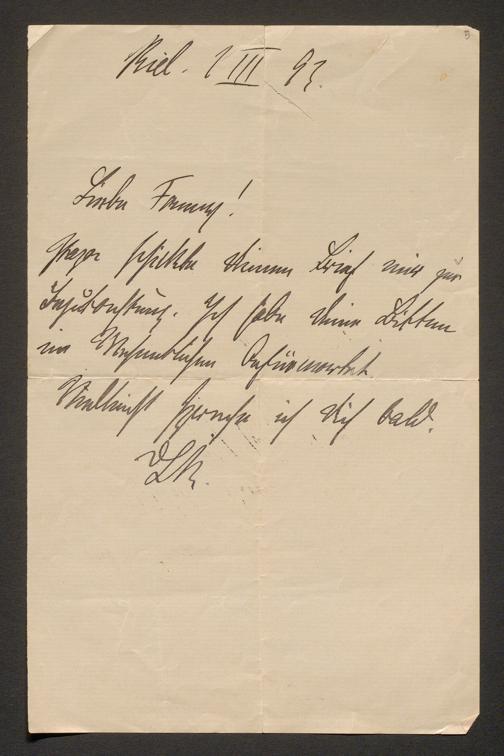 Kiel. 1 III 93.
Liebe Fanny!
schickte Deinen Brief mir zur
Begutachtung. Ich habe Deine Bitten
im Wesentlichen befürwortet.
Vielleicht spreche ich Dich bald.